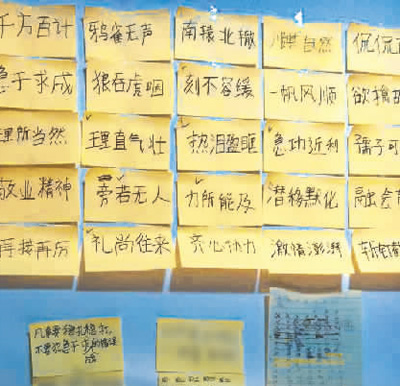 千方百计 鸦雀无声 南辕北辙 自然 侃侃
急于求成 狼吞虎咽 刻不容缓 一帆风顺 欲擒故
理所当然 理直气壮 热泪盈眶 急功近利 孺子可
敬业精神 旁若无人 力所能及 潜移默化 融会
再接再厉 礼尚往来 齐心协力 激情澎湃 斩钉截
凡事要稳扎稳打,
不要犯急于求的错误
成